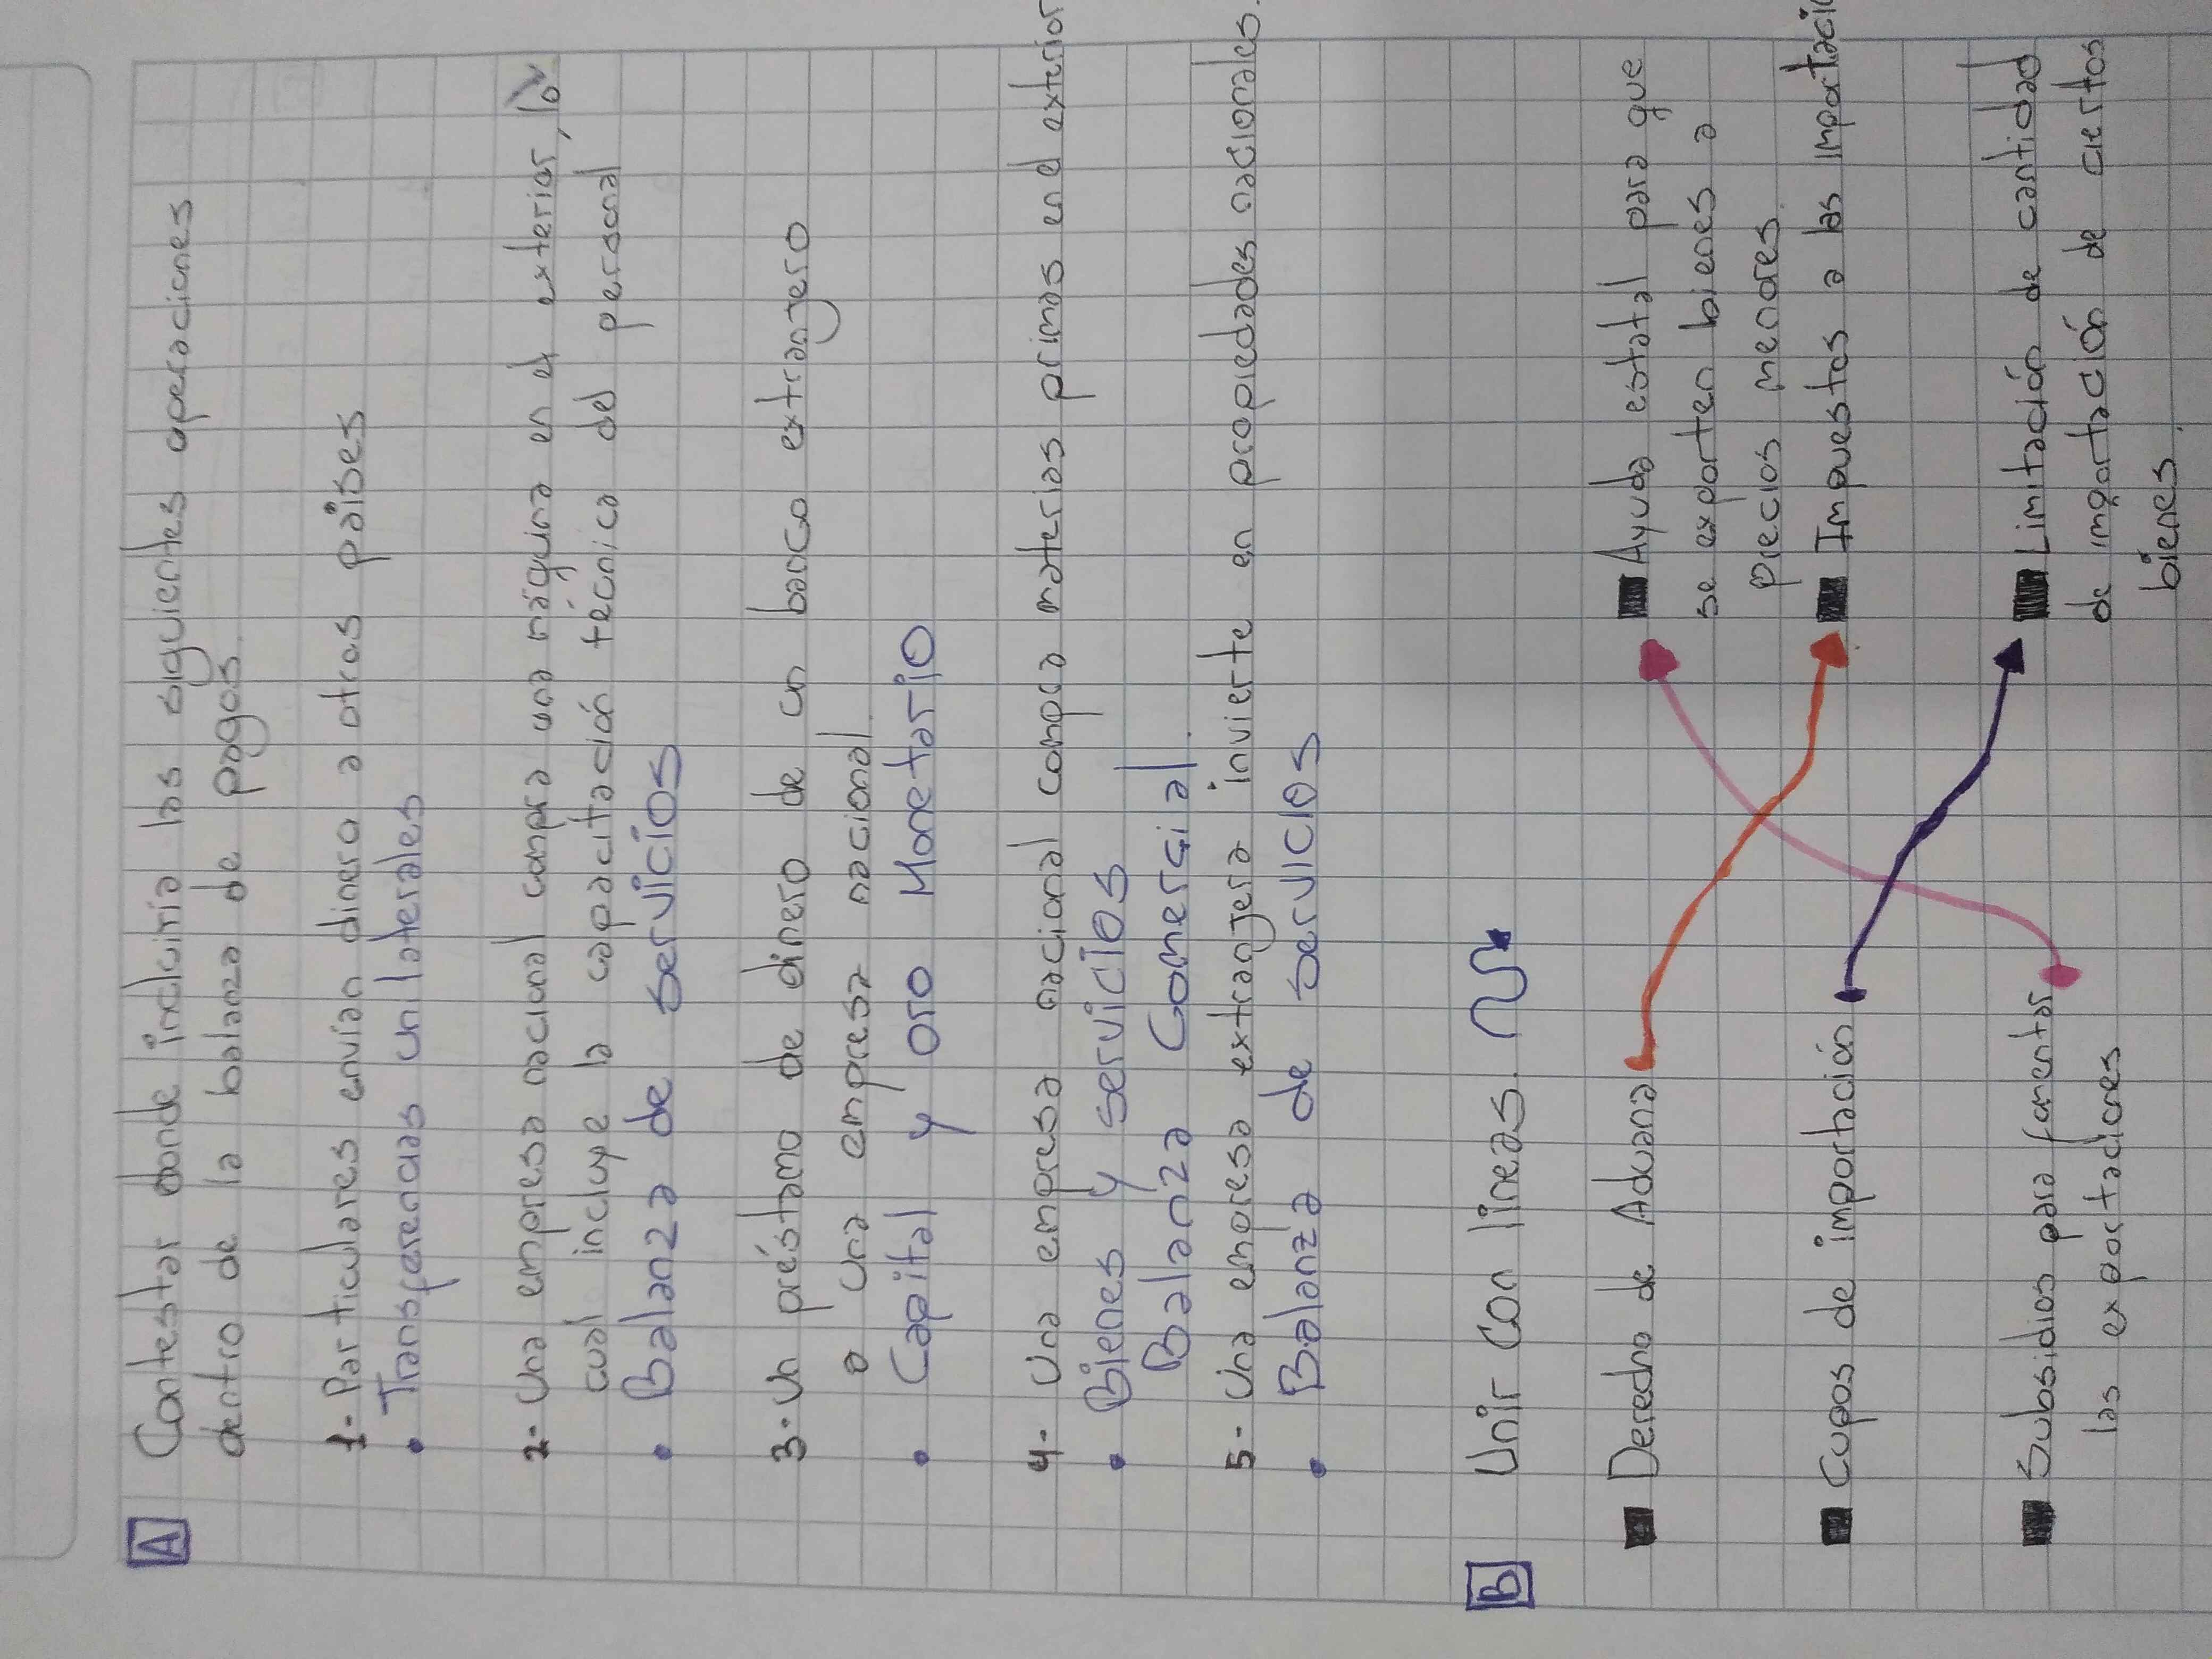 A Contestar donde incluiría las siguientes operaciones
dentro de la balanza de pagos.
1- Particulares envían dinero a otros países
• Transferencias unilaterales
2- Una empresa nacional compra una máquina en el exterior, lo
cual incluye la capacitación técnica del personal
• Balanza de servicios
3- Un préstamo de dinero de un banco extranjero
a una empresa nacional.
• Capital y oro Monetario
4- Una empresa nacional compra materias primas en el exterior
• Bienes y servicios
Balanza Comercial.
5- Una empresa extranjera invierte en propiedades nacionales.
• Balanza de servicios
B Unir con lineas.
■ Derecho de Aduana
■ Cupos de importación
■ Subsidios para fomentar
las exportaciones
■ Ayuda estatal para que
se exporten bienes a
precios menores.
■ Impuestos a las importacio
■ Limitación de cantidad
de importación de ciertos
bienes.